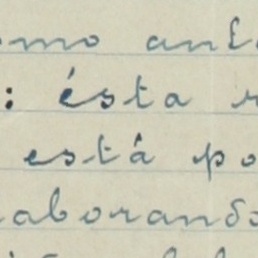 omo ant
: ésta r
está po
aborando